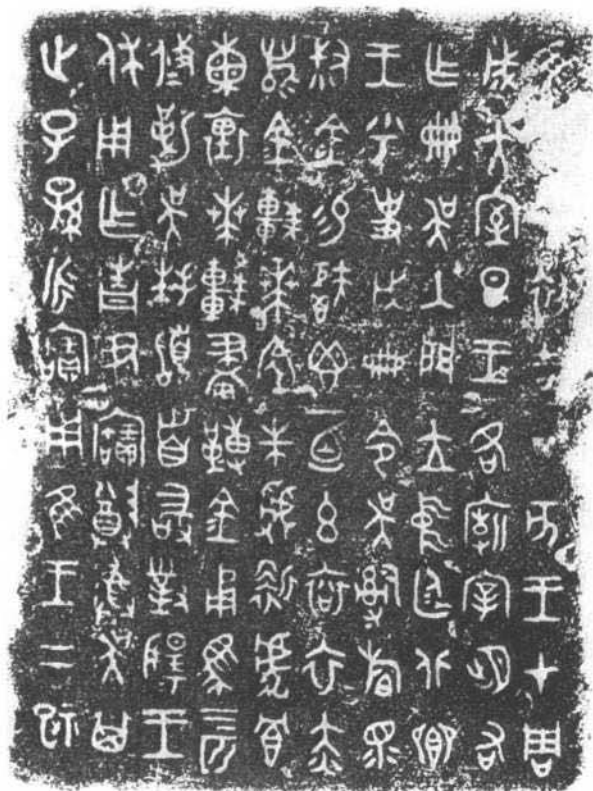 隹初吉亥王才周
成大室旦王各廟宰朏右
乍冊吳入門立中廷北鄉
王乎史戊冊令吳𤔲眔
叔金易鬯一卣玄袞衣赤
舄金車𠦪朱虢靳虎冟
熏裏𠦪較畫金甬馬四匹
攸勒吳拜𩒨首敢對揚王
休用乍青尹寶尊彝吳其
世子孫永寶用隹王二祀